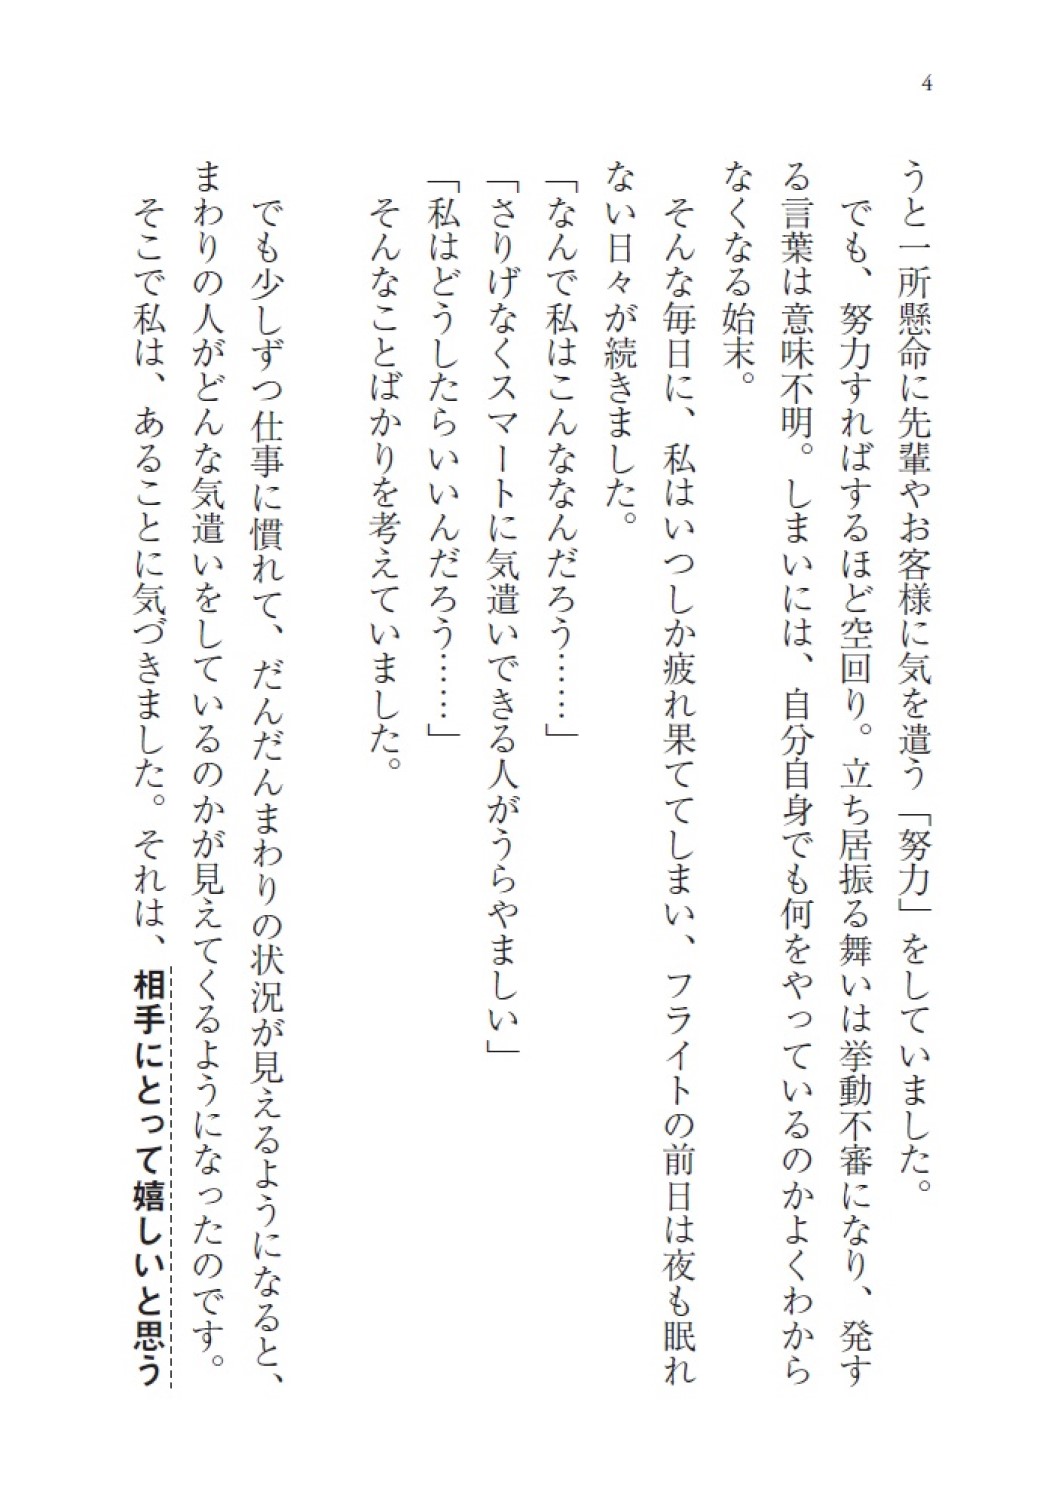 4
うと一所懸命に先輩やお客様に気を遣う「努力」をしていました。
でも、努力すればするほど空回り。立ち居振る舞いは挙動不審になり、発す
る言葉は意味不明。しまいには、自分自身でも何をやっているのかよくわから
なくなる始末。
そんな毎日に、私はいつしか疲れ果ててしまい、フライトの前日は夜も眠れ
ない日々が続きました。
「なんで私はこんななんだろう……」
「さりげなくスマートに気遣いできる人がうらやましい」
「私はどうしたらいいんだろう……」
そんなことばかりを考えていました。
でも少しずつ仕事に慣れて、だんだんまわりの状況が見えるようになると、
まわりの人がどんな気遣いをしているのかが見えてくるようになったのです。
そこで私は、あることに気づきました。それは、相手にとって嬉しいと思う